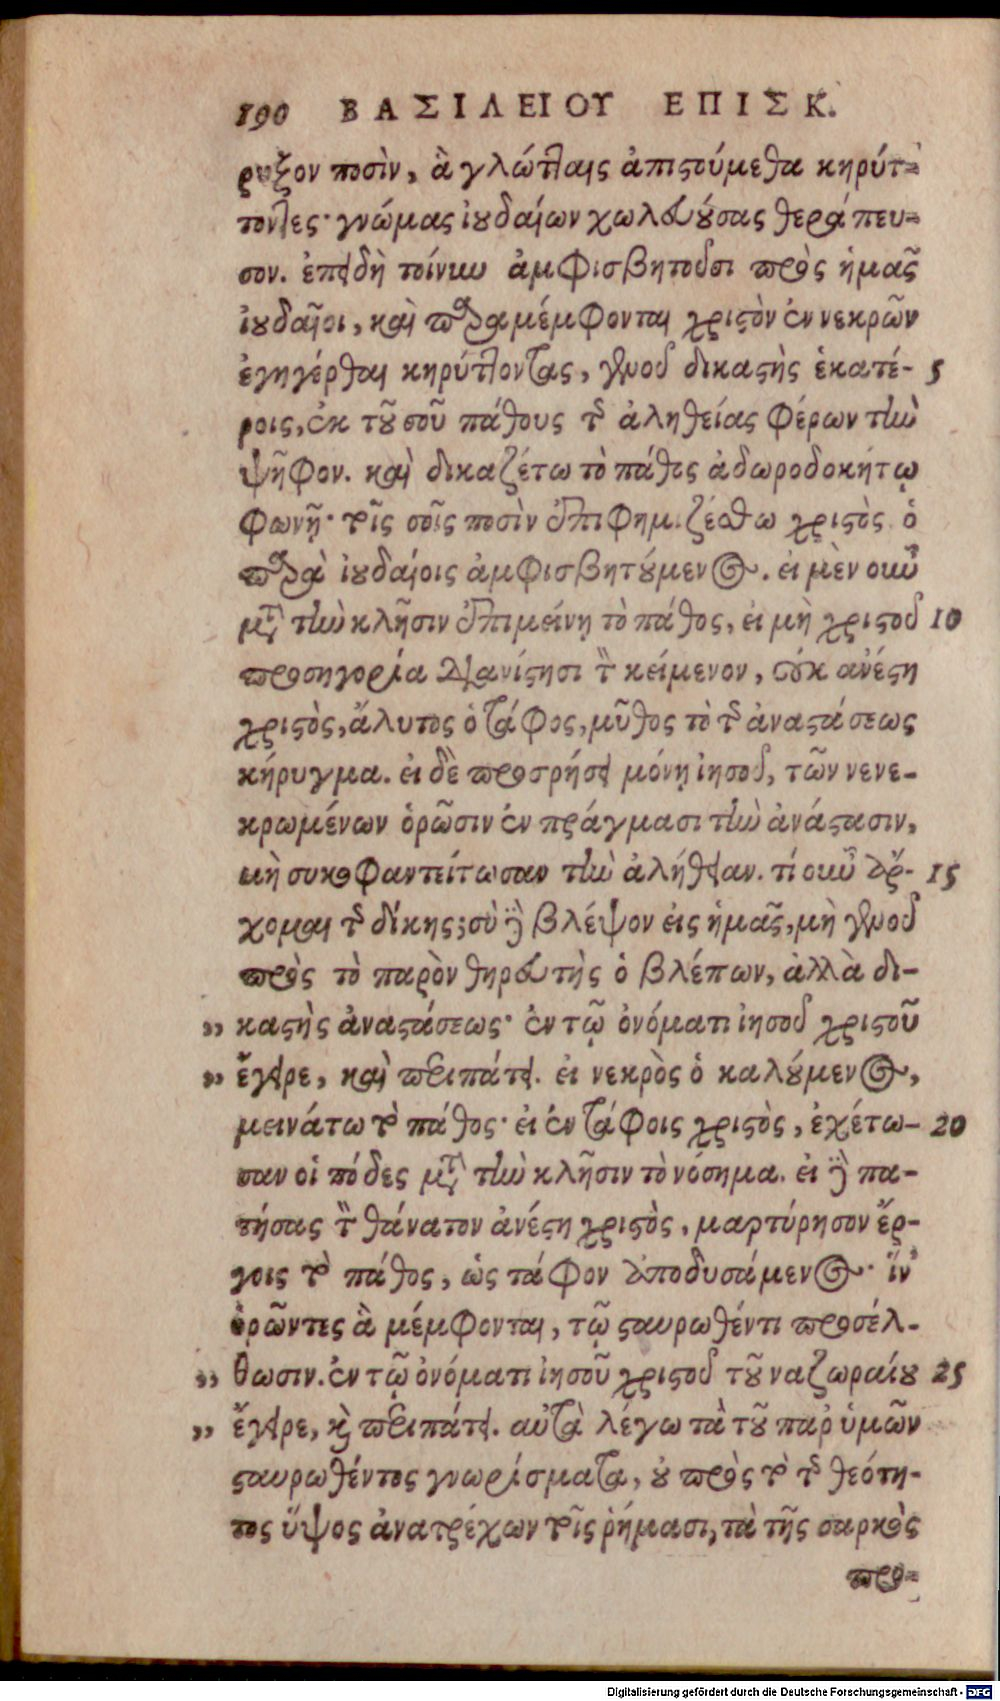 190 ΒΑΣΙΛΕΙΟΥ ΕΠΙΣΚ.
ρυξον ποσὶν, ἃ γλώτταις ἀπιςούμεθα κηρύτ-
τοντες· γνώμας ἰουδαίων χωλευούσας θεράπευ-
σον. ἐπειδὴ τοίνυν ἀμφισβητοῦσι πρὸς ἡμᾶς
ἰουδαῖοι, καὶ παραμέμφονται χριςὸν ἐν νεκρῶν
ἐγηγέρθαι κηρύττοντας, γενοῦ δικαςὴς ἑκατέ- 5
ροις, ἐκ τοῦ σοῦ πάθους τῆς ἀληθείας φέρων τὴν
ψῆφον. καὶ δικαζέτω τὸ πάθος ἀδωροδοκήτῳ
φωνῇ· τοῖς σοῖς ποσὶν ἐπιφημιζέσθω χριςὸς ὁ
παρὰ ἰουδαίοις ἀμφισβητούμενος. εἰ μὲν οὖν
μετὰ τὴν κλῆσιν ἐπιμείνῃ τὸ πάθος, εἰ μὴ χριςοῦ 10
προσηγορία διανίςησι τὸν κείμενον, οὐκ ἀνέςη
χριςὸς, ἄλυτος ὁ τάφος, μῦθος τὸ τῆς ἀναςάσεως
κήρυγμα. εἰ δὲ προσρήσει μόνῃ ἰησοῦ, τῶν νενε-
κρωμένων ὁρῶσιν ἐν πράγμασι τὴν ἀνάςασιν,
μὴ συκοφαντείτωσαν τὴν ἀλήθειαν. τί οὖν ἄρ- 15
χομαι τῆς δίκης; σὺ δὲ βλέψον εἰς ἡμᾶς, μὴ γενοῦ
πρὸς τὸ παρὸν θηρευτὴς ὁ βλέπων, ἀλλὰ δι-
,, καςὴς ἀναςάσεως· ἐν τῷ ὀνόματι ἰησοῦ χριςοῦ
,, ἔγειρε, καὶ περιπάτει. εἰ νεκρὸς ὁ καλούμενος,
μεινάτω τὸ πάθος· εἰ ἐν τάφοις χριςὸς, ἐχέτω- 20
σαν οἱ πόδες μετὰ τὴν κλῆσιν τὸ νόσημα. εἰ δὲ πα-
τήσας τὸν θάνατον ἀνέςη χριςὸς, μαρτύρησον ἔρ-
γοις τὸ πάθος, ὡς τάφον ἀποδυσάμενος· ἵν'
ὁρῶντες ἃ μέμφονται, τῷ ςαυρωθέντι προσέλ-
,, θωσιν. ἐν τῷ ὀνόματι ἰησοῦ χριςοῦ τοῦ ναζωραίου 25
,, ἔγειρε, καὶ περιπάτει. αὐτὰ λέγω τὰ τοῦ παρ' ὑμῶν
ςαυρωθέντος γνωρίσματα, οὐ πρὸς τὸ τῆς θεότη-
τος ὕψος ἀνατρέχων τοῖς ῥήμασι, τὰ τῆς σαρκὸς
προ-
Digitalisierung gefördert durch die Deutsche Forschungsgemeinschaft - DFG